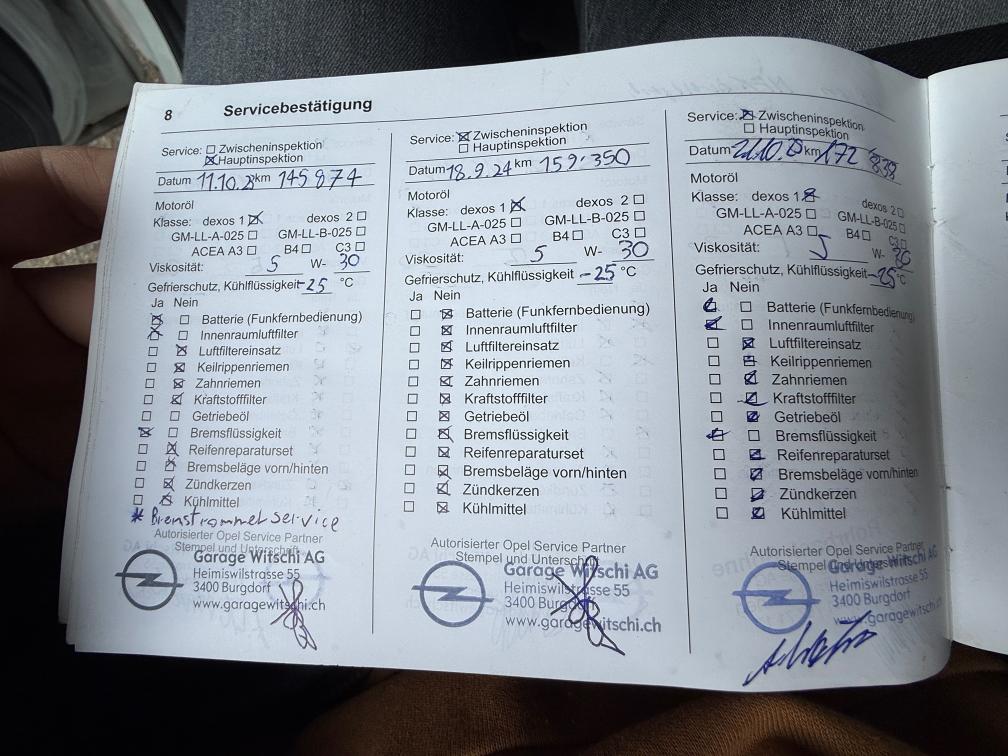 8 Servicebestätigung
Service: ☐ Zwischeninspektion
☒ Hauptinspektion
Datum 11.10.23 km 145 874
Motoröl
Klasse: dexos 1 ☒ dexos 2 ☐
GM-LL-A-025 ☐ GM-LL-B-025 ☐
ACEA A3 ☐ B4 ☐ C3 ☐
Viskosität: 5 W- 30
Gefrierschutz, Kühlflüssigkeit -25 °C
Ja Nein
☒ ☐ Batterie (Funkfernbedienung)
☒ ☐ Innenraumluftfilter
☐ ☒ Luftfiltereinsatz
☐ ☒ Keilrippenriemen
☐ ☒ Zahnriemen
☐ ☒ Kraftstofffilter
☐ ☐ Getriebeöl
☒ ☐ Bremsflüssigkeit
☐ ☒ Reifenreparaturset
☐ ☒ Bremsbeläge vorn/hinten
☐ ☒ Zündkerzen
☐ ☒ Kühlmittel
* Bremstrommel Service
Autorisierter Opel Service Partner
Stempel und Unterschrift
Garage Witschi AG
Heimiswilstrasse 55
3400 Burgdorf
www.garagewitschi.ch
Service: ☒ Zwischeninspektion
☐ Hauptinspektion
Datum 18.9.24 km 159'350
Motoröl
Klasse: dexos 1 ☒ dexos 2 ☐
GM-LL-A-025 ☐ GM-LL-B-025 ☐
ACEA A3 ☐ B4 ☐ C3 ☐
Viskosität: 5 W- 30
Gefrierschutz, Kühlflüssigkeit -25 °C
Ja Nein
☐ ☒ Batterie (Funkfernbedienung)
☐ ☒ Innenraumluftfilter
☐ ☒ Luftfiltereinsatz
☐ ☒ Keilrippenriemen
☐ ☒ Zahnriemen
☐ ☒ Kraftstofffilter
☐ ☒ Getriebeöl
☐ ☒ Bremsflüssigkeit
☐ ☒ Reifenreparaturset
☐ ☒ Bremsbeläge vorn/hinten
☐ ☒ Zündkerzen
☐ ☒ Kühlmittel
Autorisierter Opel Service Partner
Stempel und Unterschrift
Garage Witschi AG
Heimiswilstrasse 55
3400 Burgdorf
www.garagewitschi.ch
Service: ☒ Zwischeninspektion
☐ Hauptinspektion
Datum km 172 838
Motoröl
Klasse: dexos 1 ☒ dexos 2 ☐
GM-LL-A-025 ☐ GM-LL-B-025 ☐
ACEA A3 ☐ B4 ☐ C3 ☐
Viskosität: 5 W- 30
Gefrierschutz, Kühlflüssigkeit -25 °C
Ja Nein
☒ ☐ Batterie (Funkfernbedienung)
☒ ☐ Innenraumluftfilter
☐ ☒ Luftfiltereinsatz
☐ ☒ Keilrippenriemen
☐ ☒ Zahnriemen
☐ ☒ Kraftstofffilter
☐ ☒ Getriebeöl
☒ ☐ Bremsflüssigkeit
☐ ☒ Reifenreparaturset
☐ ☒ Bremsbeläge vorn/hinten
☐ ☒ Zündkerzen
☐ ☒ Kühlmittel
Autorisierter Opel Service Partner
Stempel und Unterschrift
Garage Witschi AG
Heimiswilstrasse 55
3400 Burgdorf
www.garagewitschi.ch